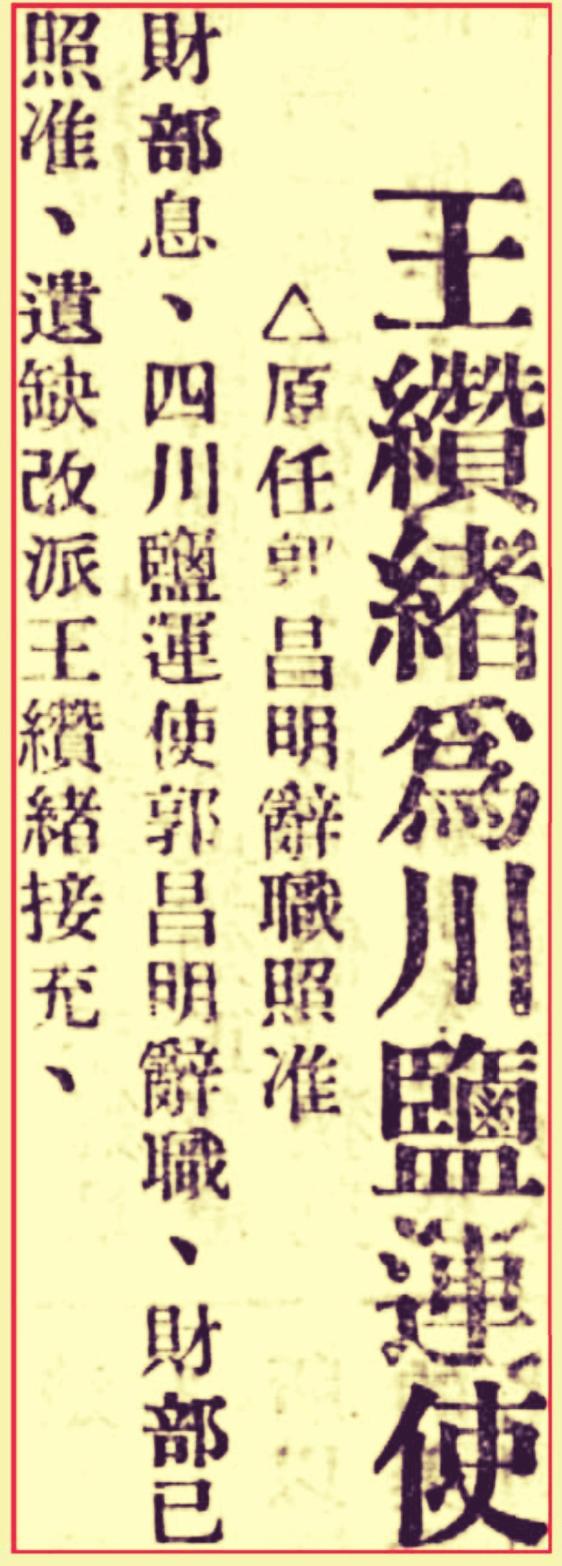 王纘緖爲川鹽運使
△原任郭昌明辭職照准
財部息、四川鹽運使郭昌明辭職、財部已
照准、遺缺改派王纘緖接充、